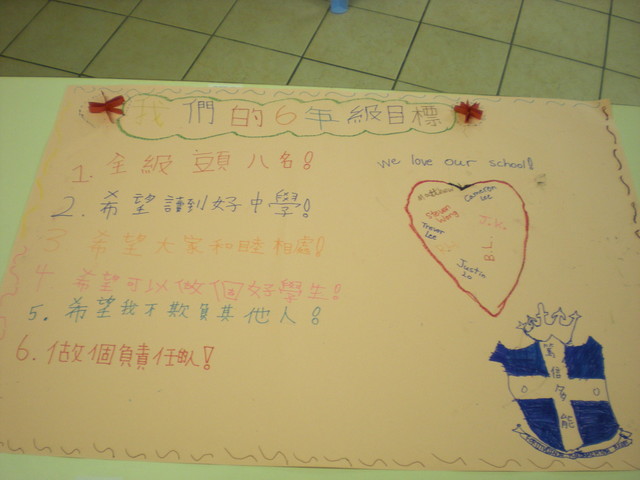 我們的6年級目標
1. 全級頭八名!
2. 希望讀到好中學!
3 希望大家和睦相處!
4 希望可以做個好學生!
5. 希望我不欺負其他人!
6. 做個負責任!
We love our school!
Matthew
Cameron
Lee
Steven
Wong
Trevor
Lee
J.K.
B.L.
Justin
Lo
篤信多能